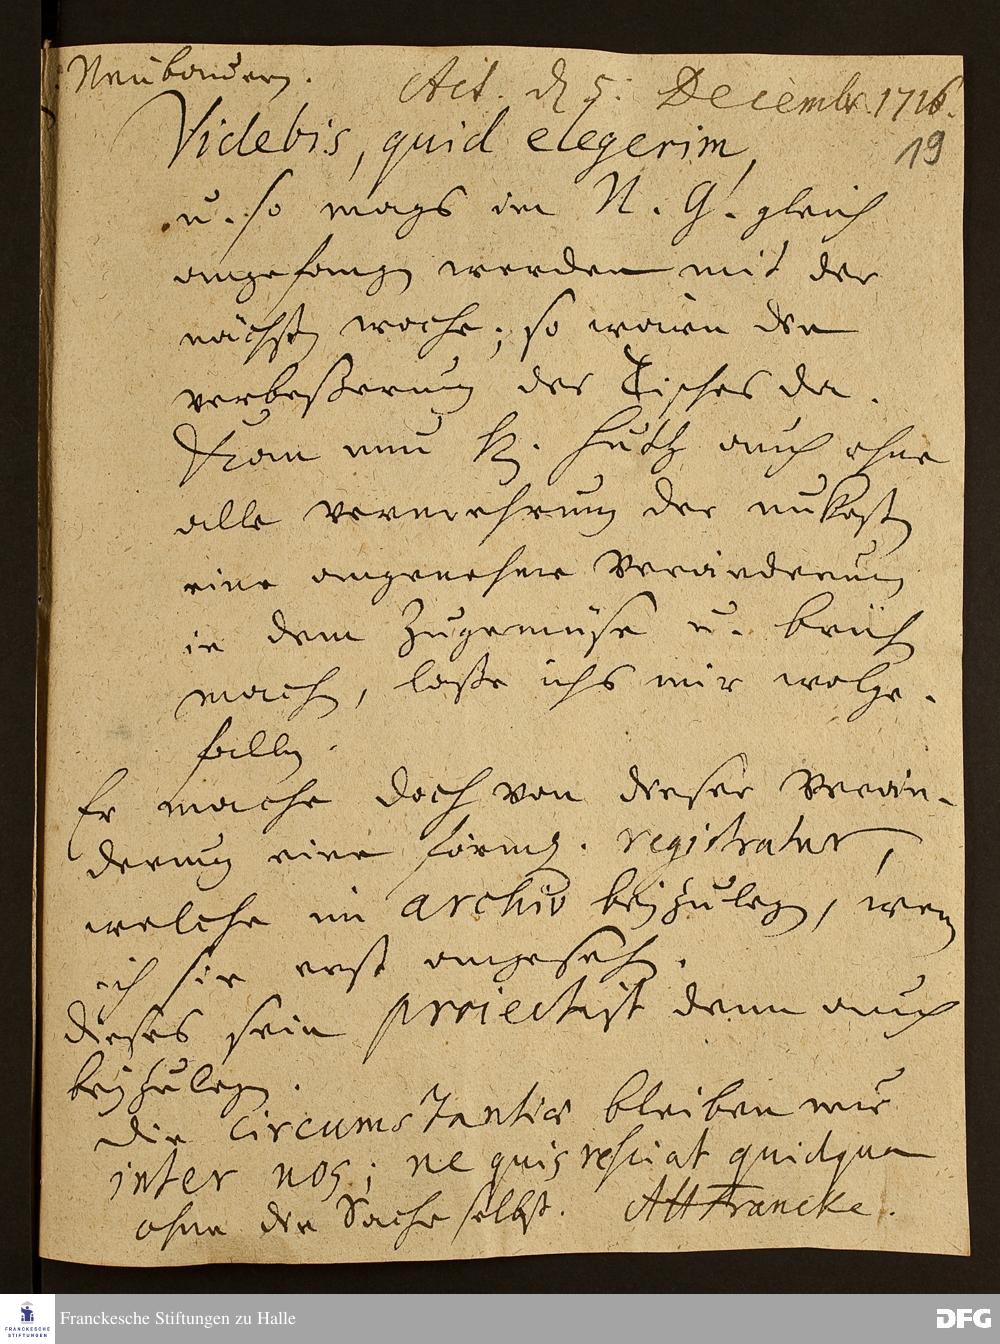 Neubauern. Act. d 5. Decembr. 1716.
19
Videbis, quid elegerim,
u. so mags im N. G. gleich
angefangen werden mit der
nächsten woche; so wären die
verbeßerung des Tisches da.
Kan nun H. Huth auch ohne
alle vermehrung der unkosten
eine angenehme Veränderung
in dem Zugemüse u. brühen
machen, laße ichs mir wolge-
fallen.
Er mache doch von dieser Verän-
derung eine förml. registratur,
welche im archiv beyzulegen, wen
ich sie erst angesehen.
dieses sein project ist denn auch
beyzulegen.
Die circumstantiae bleiben nur
inter nos; ne quis resciat quidquam
ohne die Sache selbst. AHFrancke.
FRANCKESCHE STIFTUNGEN
Franckesche Stiftungen zu Halle
DFG